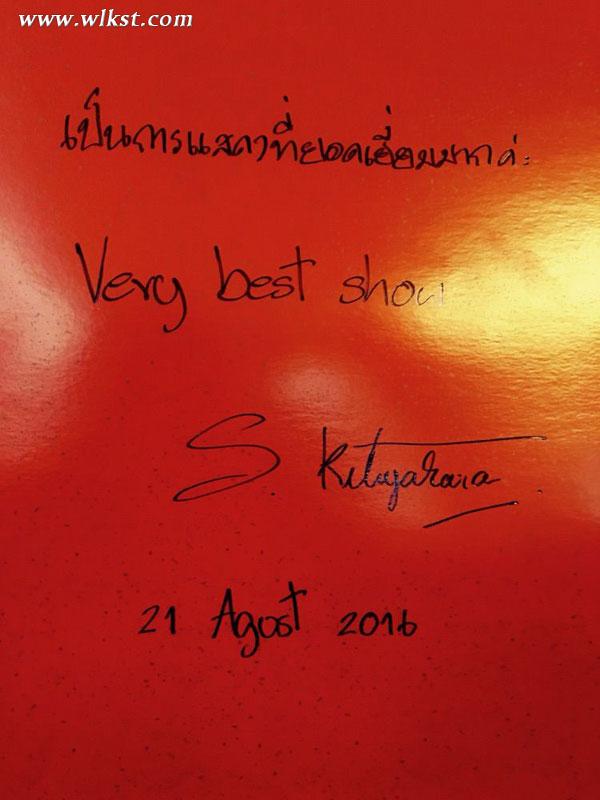 www.wlkst.com
เป็นการแสดงที่ยอดเยี่ยมมากค่ะ
Very best show
S. Kitayahara
21 Agost 2016